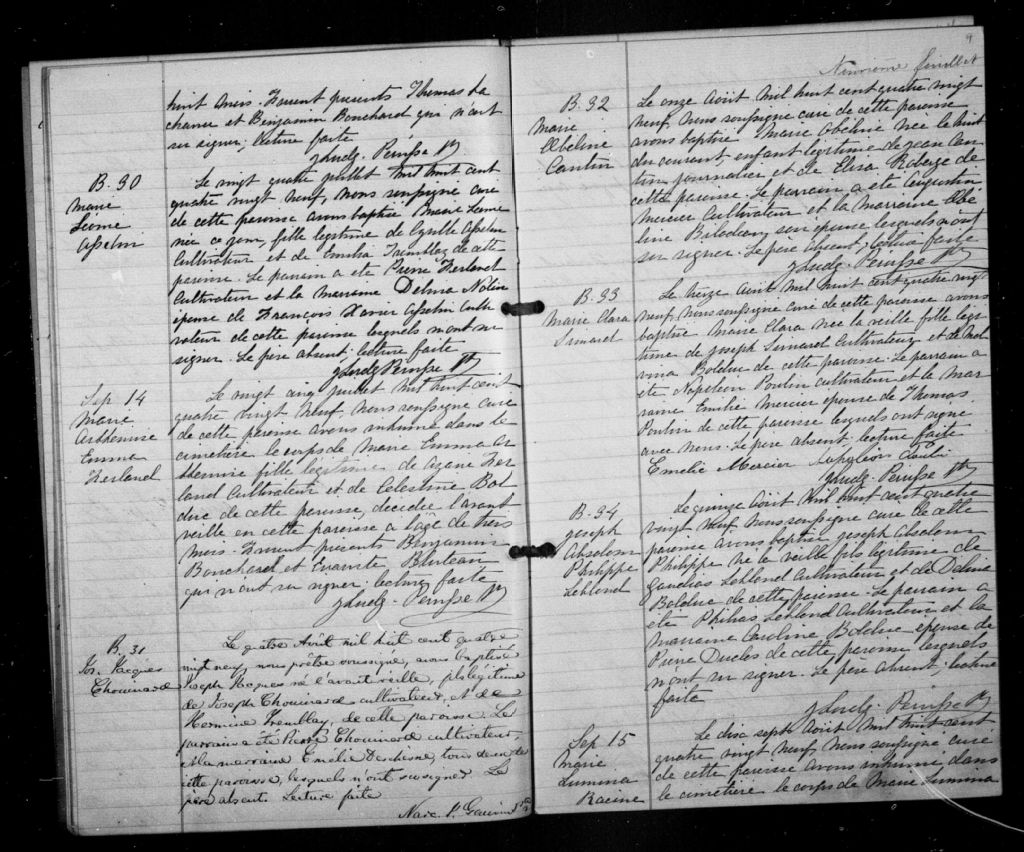 huit mois. Furent présents Thomas La
chance et Benjamin Bouchard qui n'ont
su signer; lecture faite
J Ludg. Perusse Ptr
B. 30
Marie
Leonie
Asselin
Le vingt quatre juillet mil huit cent
quatre vingt neuf, nous soussigné curé
de cette paroisse avons baptisé Marie Leonie
née ce jour, fille legitime de Cyrille Asselin
Cultivateur et de Emilia Tremblay de cette
paroisse. Le parrain a été Pierre Ferland
Cultivateur et la marraine Delima Nolin
épouse de François Xavier Asselin Culti
vateur de cette paroisse lesquels n'ont su
signer. Le père absent; lecture faite
J Ludg Perusse Ptr
Sep 14
Marie
Arthemise
Emma
Ferland
Le vingt cinq juillet mil huit cent
quatre vingt neuf, nous soussigné curé
de cette paroisse avons inhumé dans le
cimetière le corps de Marie Emma Ar
themise fille legitime de Ferland
Cultivateur et de Celestine Bol
duc de cette paroisse, décédée l'avant
veille en cette paroisse a l'âge de trois
mois. Furent présents Benjamin
Bouchard et Evariste Bluteau
qui n'ont su signer. lecture faite
J Ludg. Perusse Ptr
B. 31
Jos. Jacques
Chouinard
Le quatre Août mil huit cent quatre
vingt neuf, nous prêtre soussigné, avons baptisé
Joseph Jacques né l'avant veille, fils légitime
de Joseph Chouinard cultivateur, et de
Hermine Tremblay, de cette paroisse. Le
parrain a été Pierre Chouinard cultivateur,
et la marraine Emélie Deschesne, tous deux de
cette paroisse, lesquels n'ont su signer. Le
père absent. Lecture faite
Narc. P. Ptre
9
Neuvieme feuillet
B. 32
Marie
Obéline
Cantin
Le onze Août mil huit cent quatre vingt
neuf, nous soussigné curé de cette paroisse
avons baptisé Marie Obéline née le huit
du courant, enfant legitime de Jean Can
tin journalier et de Elisa Roberge de
cette paroisse. Le parrain a été Augustin
Mercier Cultivateur et la Marraine Obé
line Bilodeau son épouse lesquels n'ont
su signer. Le père absent; lecture faite
J Ludg. Perusse Ptr
B. 33
Marie Clara
Simard
Le treize Août mil huit cent quatre vingt
neuf, nous soussigné curé de cette paroisse avons
baptisé Marie Clara née la veille fille legi
time de Joseph Simard Cultivateur et de Mal
vina Bolduc de cette paroisse. Le parrain a
été Napoléon Poulin cultivateur et la mar
raine Emilie Mercier épouse de Thomas
Poulin de cette paroisse lesquels ont signé
avec nous. Le père absent. lecture faite
Emélie Mercier Napoléon Poulin
J Ludg. Perusse Ptr
B. 34
Joseph
Absolom
Philippe
Leblond
Le quinze Août mil huit cent quatre
vingt neuf nous soussigné curé de cette
paroisse avons baptisé Joseph Absolom
Philippe né la veille fils legitime de
Gaudias Leblond Cultivateur et de Delima
Bolduc de cette paroisse. Le parrain a
été Philias Leblond Cultivateur et la
marraine Caroline Bolduc épouse de
Pierre Duclos de cette paroisse lesquels
n'ont su signer. Le père absent; lecture
faite
J Ludg. Perusse Ptr
Sep 15
Marie
Lumina
Racine
Le dix sept Août mil huit cent
quatre vingt neuf, nous soussigné curé
de cette paroisse avons inhumé dans
le cimetière le corps de Marie Lumina